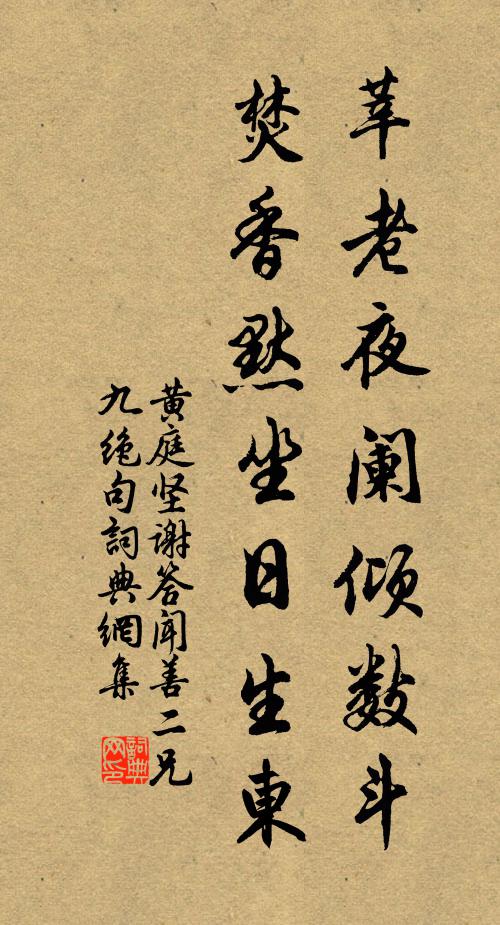 莘老夜阑倾数斗
焚香默坐日生東
黄庭坚谢答闻善二兄
九绝句詞典網集
詞典网印